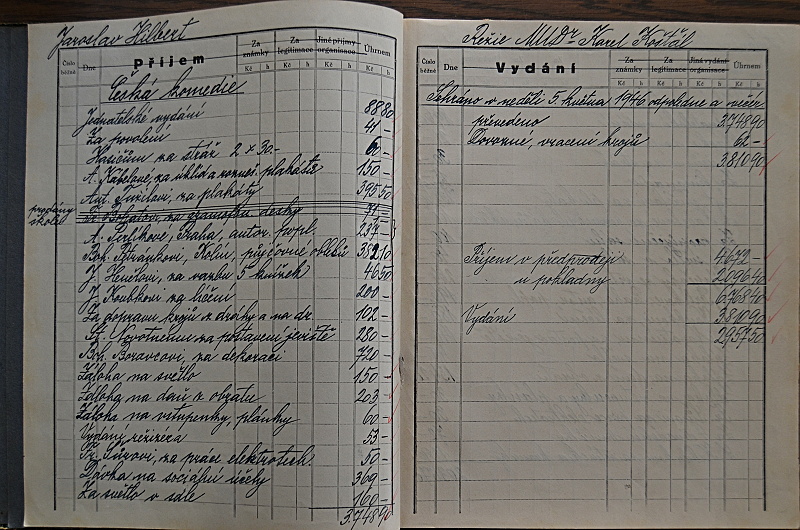 Jaroslav Hilbert
Číslo běžné Dne Příjem Za známky Za legitimace Jiné příjmy organisace Úhrnem
Kč h Kč h Kč h Kč h
Česká komedie
Jednatelské vydání 88 80
Za povolení 41 -
Hasičům na stráž 2 x 30.- 60 -
A. Kábelové, za úklid a roznáš. plakátů 150 -
Ant. Tužilovi, za plakáty 395 50
prodány škole
za gramofon. desky 71 -
A. Perlíkové, Praha, autor. popl. 237 -
Boh. Bitrankovi, Kolín, půjčovné obleků 382 10
J. Henčlovi, za vazbu 5 knížek 46 50
J. Koubkovi za líčení 200 -
Za dopravu krojů z dráhy a na dr. 102 -
St. Novotnému za postavení jeviště 280 -
Boh. Boravcovi, za dekoraci 720 -
Záloha na světlo 150 -
Záloha na daň z obratu 203 -
Záloha na vstupenky, plánky 60 -
Vydání režiséra 53 -
Fr. Šůrovi, za práci elektrotech. 50 -
Dávka na sociální účely 369 -
Za světlo v sále 160 -
3.748 90
Režie MUDr Karel Košťál
Číslo běžné Dne Vydání Za známky Za legitimace Jiná vydání organisace Úhrnem
Kč h Kč h Kč h Kč h
Sehráno v neděli 5. května 1946 odpoledne a večer
převedeno 3.748 90
Dovozné, vracení krojů 62 -
3.810 90
Příjem v předprodeji 4.672 -
" u pokladny 2.096 40
6.768 40
Vydání 3.810 90
2.957 50